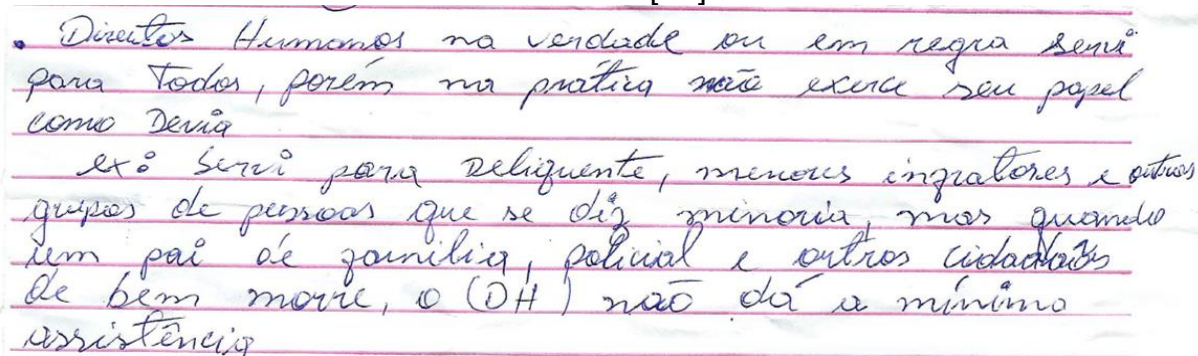 . Direitos Humanos na verdade ou em regra servi
para Todos, porém na prática não exerce seu papel
como Devia
ex: Servi para Deliquente, menores infratores e outros
grupos de pessoas que se diz minoria, mas quando
um pai de família, policial e outros cidadãos
de bem morre, o (DH) não dá a mínimo
assistência